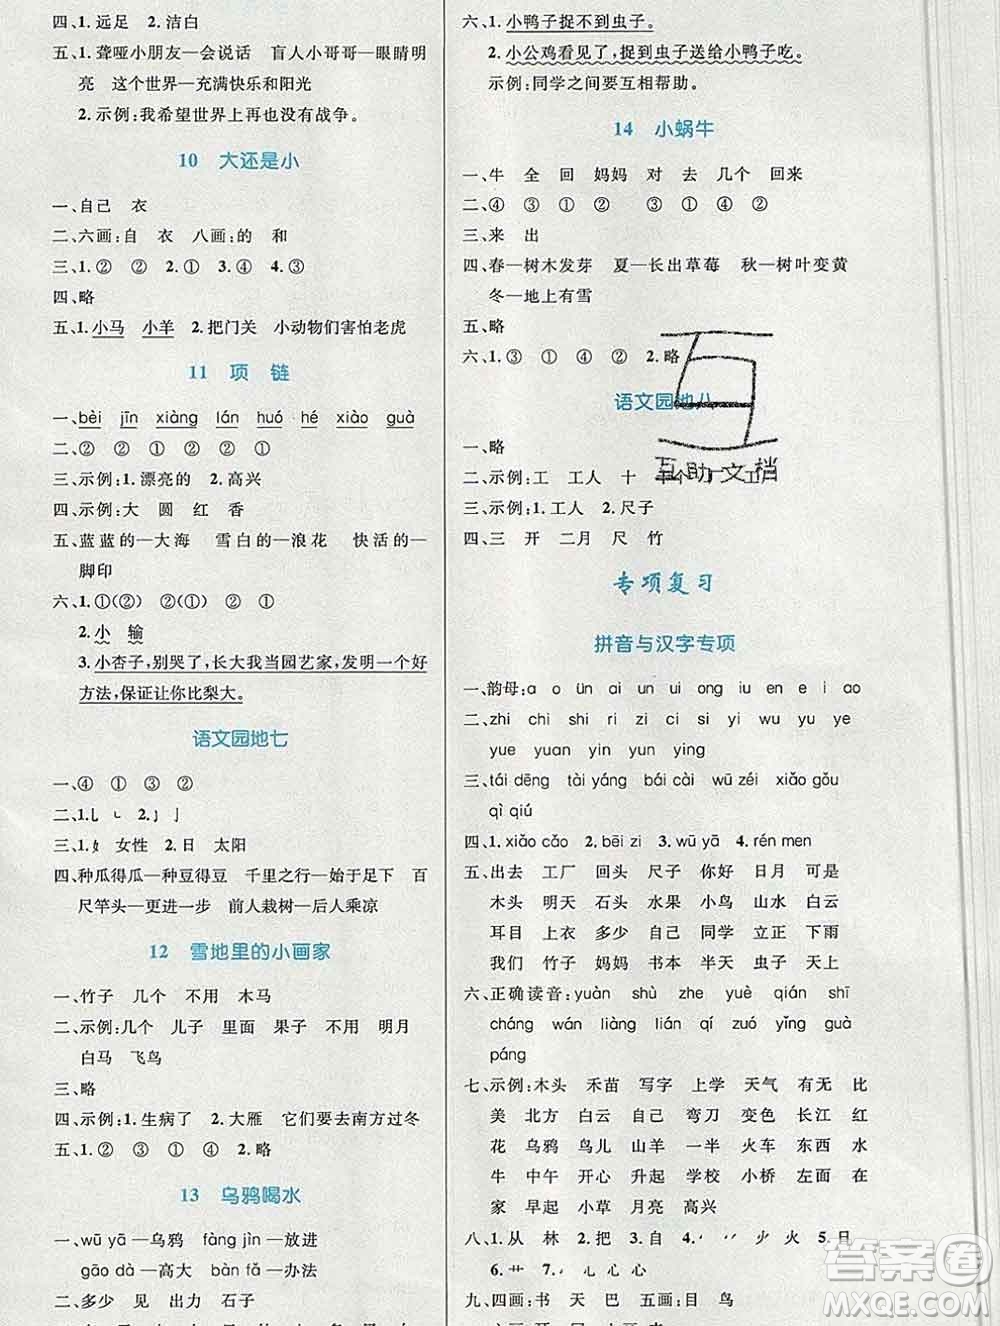 四、1. 远足 2. 洁白
五、1. 聋哑小朋友—会说话 盲人小哥哥—眼睛明
亮 这个世界—充满快乐和阳光
2. 示例:我希望世界上再也没有战争。
10 大还是小
一、自己 衣
二、六画:自 衣 八画:的 和
三、1. ② ② 2. ① 3. ④ 4. ③
四、略
五、1. 小马 小羊 2. 把门关 小动物们害怕老虎
11 项 链
一、bèi jīn xiàng lán huó hé xiào guà
二、② ② ① ① ② ②
三、示例:1. 漂亮的 2. 高兴
四、示例:大 圆 红 香
五、蓝蓝的—大海 雪白的—浪花 快活的—
脚印
六、1. ①(②) ②(①) ②(②) ①
2. 小 输
3. 小杏子,别哭了,长大我当园艺家,发明一个好
方法,保证让你比梨大。
语文园地七
一、④ ① ③ ②
二、1.
三、1. 女性 2. 日 太阳
四、种瓜得瓜—种豆得豆 千里之行—始于足下 百
尺竿头—更进一步 前人栽树—后人乘凉
12 雪地里的小画家
一、竹子 几个 不用 木马
二、示例:几个 儿子 里面 果子 不用 明月
白马 飞鸟
三、略
四、示例:1. 生病了 2. 大雁 它们要去南方过冬
五、1. ② ③ ① ④ 2. 略
13 乌鸦喝水
一、wū yā—乌鸦 fàng jìn—放进
gāo dà—高大 bàn fǎ—办法
二、多少 见 出力 石子
六、1. 小鸭子捉不到虫子。
2. 小公鸡看见了,捉到虫子送给小鸭子吃。
示例:同学之间要互相帮助。
14 小蜗牛
一、牛 全 回 妈妈 对 去 几个 回来
二、④ ③ ① ② ③ ① ④ ②
三、来 出
四、春—树木发芽 夏—长出草莓 秋—树叶变黄
冬—地上有雪
五、略
六、1. ③ ① ④ ② 2. 略
语文园地八
一、略
二、示例:工 工人 十
互助文档
三、示例:1. 工人 2. 尺子
四、三 开 二月 尺 竹
专项复习
拼音与汉字专项
一、韵母:a o ün ai un ui ong iu en e i ao
二、zhi chi shi ri zi ci si yi wu yu ye
yue yuan yin yun ying
三、tái dēng tài yáng bái cài wū zéi xiǎo gǒu
qì qiú
四、1. xiǎo cǎo 2. bēi zi 3. wū yā 4. rén men
五、出去 工厂 回头 尺子 你好 日月 可是
木头 明天 石头 水果 小鸟 山水 白云
耳目 上衣 多少 自己 同学 立正 下雨
我们 竹子 妈妈 书本 半天 虫子 正在
六、正确读音:yuàn shù zhe yuè qián shī
cháng wán liàng lián qí zuó yǐng guà
páng
七、示例:木头 禾苗 写字 上学 天气 有无 比
美 北方 白云 自己 弯刀 变色 长江 红
花 乌鸦 鸟儿 山羊 一半 火车 东西 水
牛 中午 开心 升起 学校 小桥 左面 在
家 早起 小草 月亮 高兴
八、1. 从 林 2. 把 3. 自 4. 少 火 5. 日
6. 艹 7. 心 心
九、四画:书 天 巴 五画:目 鸟
答案圈
MXQE.COM